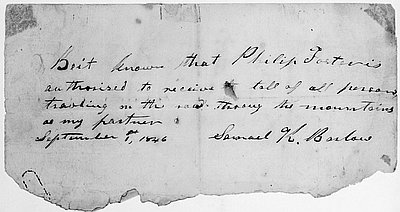 Be it known that Philip Foster is
authorized to receive toll of all persons
travling on the road throug the mountains
as my partner
September 1, 1846 Samuel K. Barlow